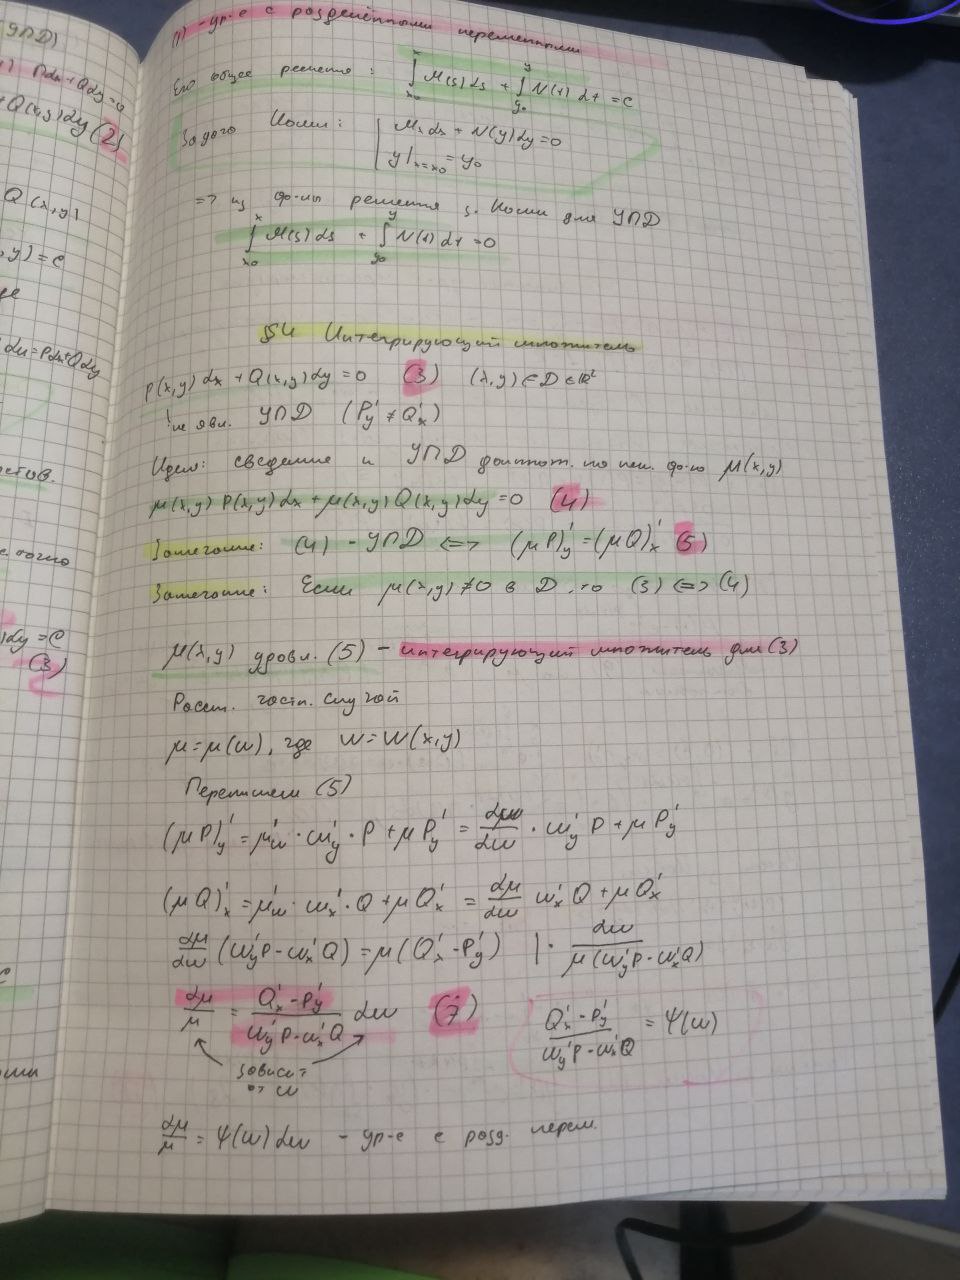 УПД)
Pdx+Qdy=0
Q(x,y)dy (2)
Q(x,y)
,y)=C
du=Pdx+Qdy
dy=C
(3)
(1) -ур-е с разделёнными переменными
Его общее решение: ∫ₓ₀ˣ M(s)ds + ∫ᵧ₀ʸ N(t)dt = C
Задача Коши: { Mx dx + N(y)dy=0
y|ₓ₌ₓ₀ = y₀
=> из ф-лы решения з. Коши для УПД
∫ₓ₀ˣ M(s)ds + ∫ᵧ₀ʸ N(t)dt = 0
§4 Интегрирующий множитель
P(x,y)dx + Q(x,y)dy = 0 (3) (x,y)∈D∈ℝ²
!не явл. УПД (P'y ≠ Q'x)
Идея: сведение к УПД домнож. на нек. ф-ю μ(x,y)
μ(x,y)P(x,y)dx + μ(x,y)Q(x,y)dy = 0 (4)
Замечание: (4) - УПД <=> (μP)'y = (μQ)'x (5)
Замечание: Если μ(x,y)≠0 в D, то (3) <=> (4)
μ(x,y) удовл. (5) - интегрирующий множитель для (3)
Рассм. частн. случай
μ=μ(w), где w=w(x,y)
Перепишем (5)
(μP)'y = μ'w · w'y · P + μP'y = dμ/dw · w'y P + μP'y
(μQ)'x = μ'w · w'x · Q + μQ'x = dμ/dw w'x Q + μQ'x
dμ/dw (w'y P - w'x Q) = μ(Q'x - P'y) | · dw/(μ(w'y P - w'x Q))
dμ/μ = (Q'x - P'y)/(w'y P - w'x Q) dw (7) (Q'x - P'y)/(w'y P - w'x Q) = Ψ(w)
зависит
от w
dμ/μ = Ψ(w)dw - ур-е с разд. перем.